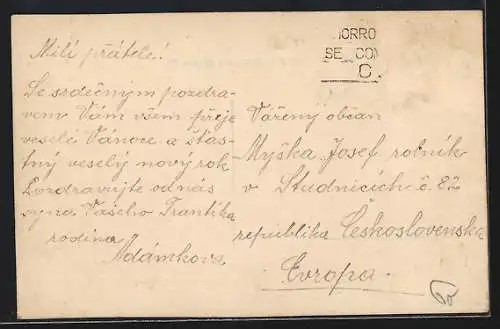 Milí přátelé!
Se srdečným pozdra-
vem Vám všem přeje
veselé Vánoce a šťas-
tný veselý nový rok
Pozdravujte od nás
syna Vašeho Frantíka
rodina
Adámkova
HORRO
SE CON
O.
Vážený občan
Myška Josef rolník
v Studnicích č. 82
republika Československa
Evropa.